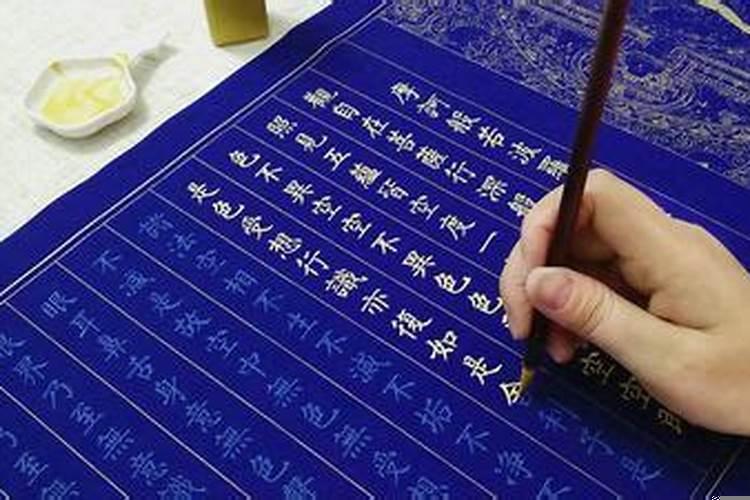 摩訶般若波羅
觀自在菩薩行深般
照見五蘊皆空度一
色不異空空不異色色空空即
是色受想行識亦復如是舍利子是
諸法空相不生不滅不垢不淨
不減是故空中無色無受
眼耳鼻舌身意無色
眼界乃至無意識
乃至無